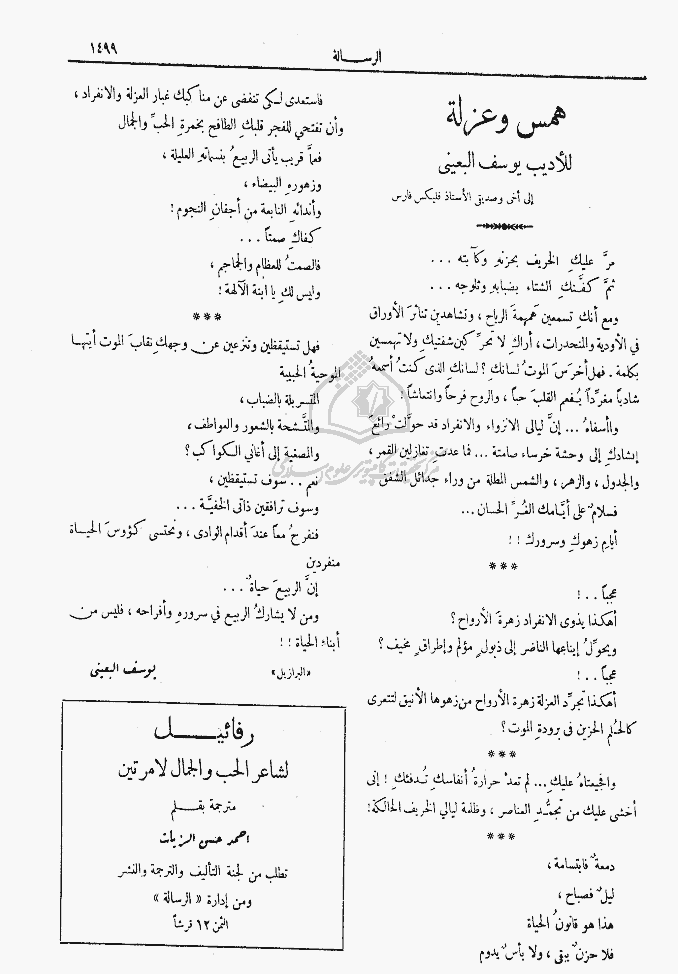 ١٤٩٩
الرسالة
همس وعزلة
للأديب يوسف البعيني
إلى أخي وصديقي الأستاذ فليكس فارس
مرَّ عليكِ الخريف بحزنهِ وكآبته ...
ثمَّ كفَّنكِ الشتاء بضبابهِ وثلوجه ...
ومع أنكِ تسمعين هَمهمةَ الرياح ، وتشاهدين تناثرَ الأوراق
في الأودية والمنحدرات ، أراكِ لا تحرِّكين شفتيكِ ولا تهمسين
بكلمة . فهل أخرَسَ الموتُ لسانكِ ؟ لسانكِ الذي كنتُ أسمعهُ
شادياً مغرِّداً يُفعم القلبَ حباً ، والروح فرحاً وانتعاشاً !
واأسفاهُ ... إنَّ ليالي الانزواء والانفراد قد حوَّلتْ رائعَ
إنشادكِ إلى وحشة خرساء صامتة ... فما عدتِ تغازلين القمر ،
والجدول ، والزهر ، والشمس المطلة من وراء جدائل الشفق
فسلامٌ على أيَّامك الغُرِّ الحسان ...
أيامِ زهوكِ وسروركِ ! !
***
عجباً . . !
أهكذا يذوى الانفراد زهرةَ الأرواح ؟
ويحوِّلُ إيناعها الناضر إلى ذبولٍ مؤلمٍ وإطراقٍ مخيف ؟
عجباً . . !
أهكذا تجرِّد العزلة زهرة الأرواح من زهوها الأنيق لتتعرى
كالحلم الحزين في برودةِ الموت ؟
***
والجيعتاهُ عليكِ ... لم تعدْ حرارةُ أنفاسكِ تُدفئكِ ! إني
أخشى عليك من تجمُّدِ العناصر ، وظلمة ليالي الخريف الحالكة !
***
دمعةٌ فابتسامة ،
ليلٌ فصباح ،
هذا هو قانونُ الحياة
فلا حزنٌ يبقى ، ولا بأسٌ يدوم
فاستعدى لكي تنفضى عن مناكبكِ غبار العزلة والانفراد ،
وأن تفتحي للفجر قلبكِ الطافح بخمرةِ الحبِّ والجمال
فعمَّا قريب يأتي الربيعُ بنسماتهِ العليلة ،
وزهورهِ البيضاء ،
وأندائهِ النابعة من أجفانِ النجوم !
كفاكِ صمتاً ...
فالصمتُ للعظام والجماجم ،
وليس لكِ يا ابنة الآلهة !
***
فهل تستيقظين وتنزعين عن وجهكِ نقابَ الموت أيتها
الموحيةُ الحبيبة
المتسربلة بالضباب ،
والمتَّشحة بالشعور والعواطف ،
والمصغية إلى أغاني الكواكب ؟
نعم .. سوف تستيقظين ،
وسوف ترافقين ذاتي الخفيَّة ...
فنفرحُ معاً عند أقدام الوادى ، ونحتسى كؤوسَ الحياة
منفردين
إنَّ الربيعَ حياةٌ ...
ومن لا يشاركُ الربيع في سرورهِ وأفراحه ، فليس من
أبناء الحياة ! !
«البرازيل»
يوسف البعيني
رفائيل
لشاعر الحب والجمال لامرتين
مترجمة بقلم
احمد حسن الزيات
تطلب من لجنة التأليف والترجمة والنشر
ومن إدارة « الرسالة »
الثمن ١٢ قرشاً